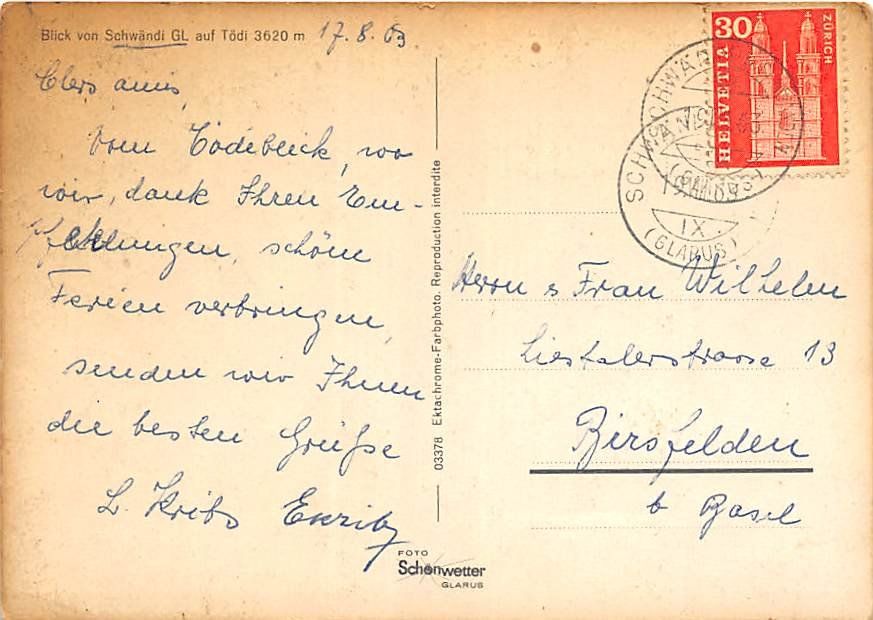 Blick von Schwändi GL auf Tödi 3620 m 17. 8. 63
Chers amis,
Vom Tödiblick, wo
wir, dank Ihren Em-
pfehlungen, schöne
Ferien verbringen,
senden wir Ihnen
die besten Grüsse
03378 Ektachrome-Farbphoto. Reproduction interdite
FOTO
Schönwetter
GLARUS
30
HELVETIA
ZÜRICH
SCHWÄNDI
(GLARUS)
SCHWÄNDI
IX
(GLARUS)
Herrn & Frau Wilhelm
Liestalerstrasse 13
Birsfelden
b Basel